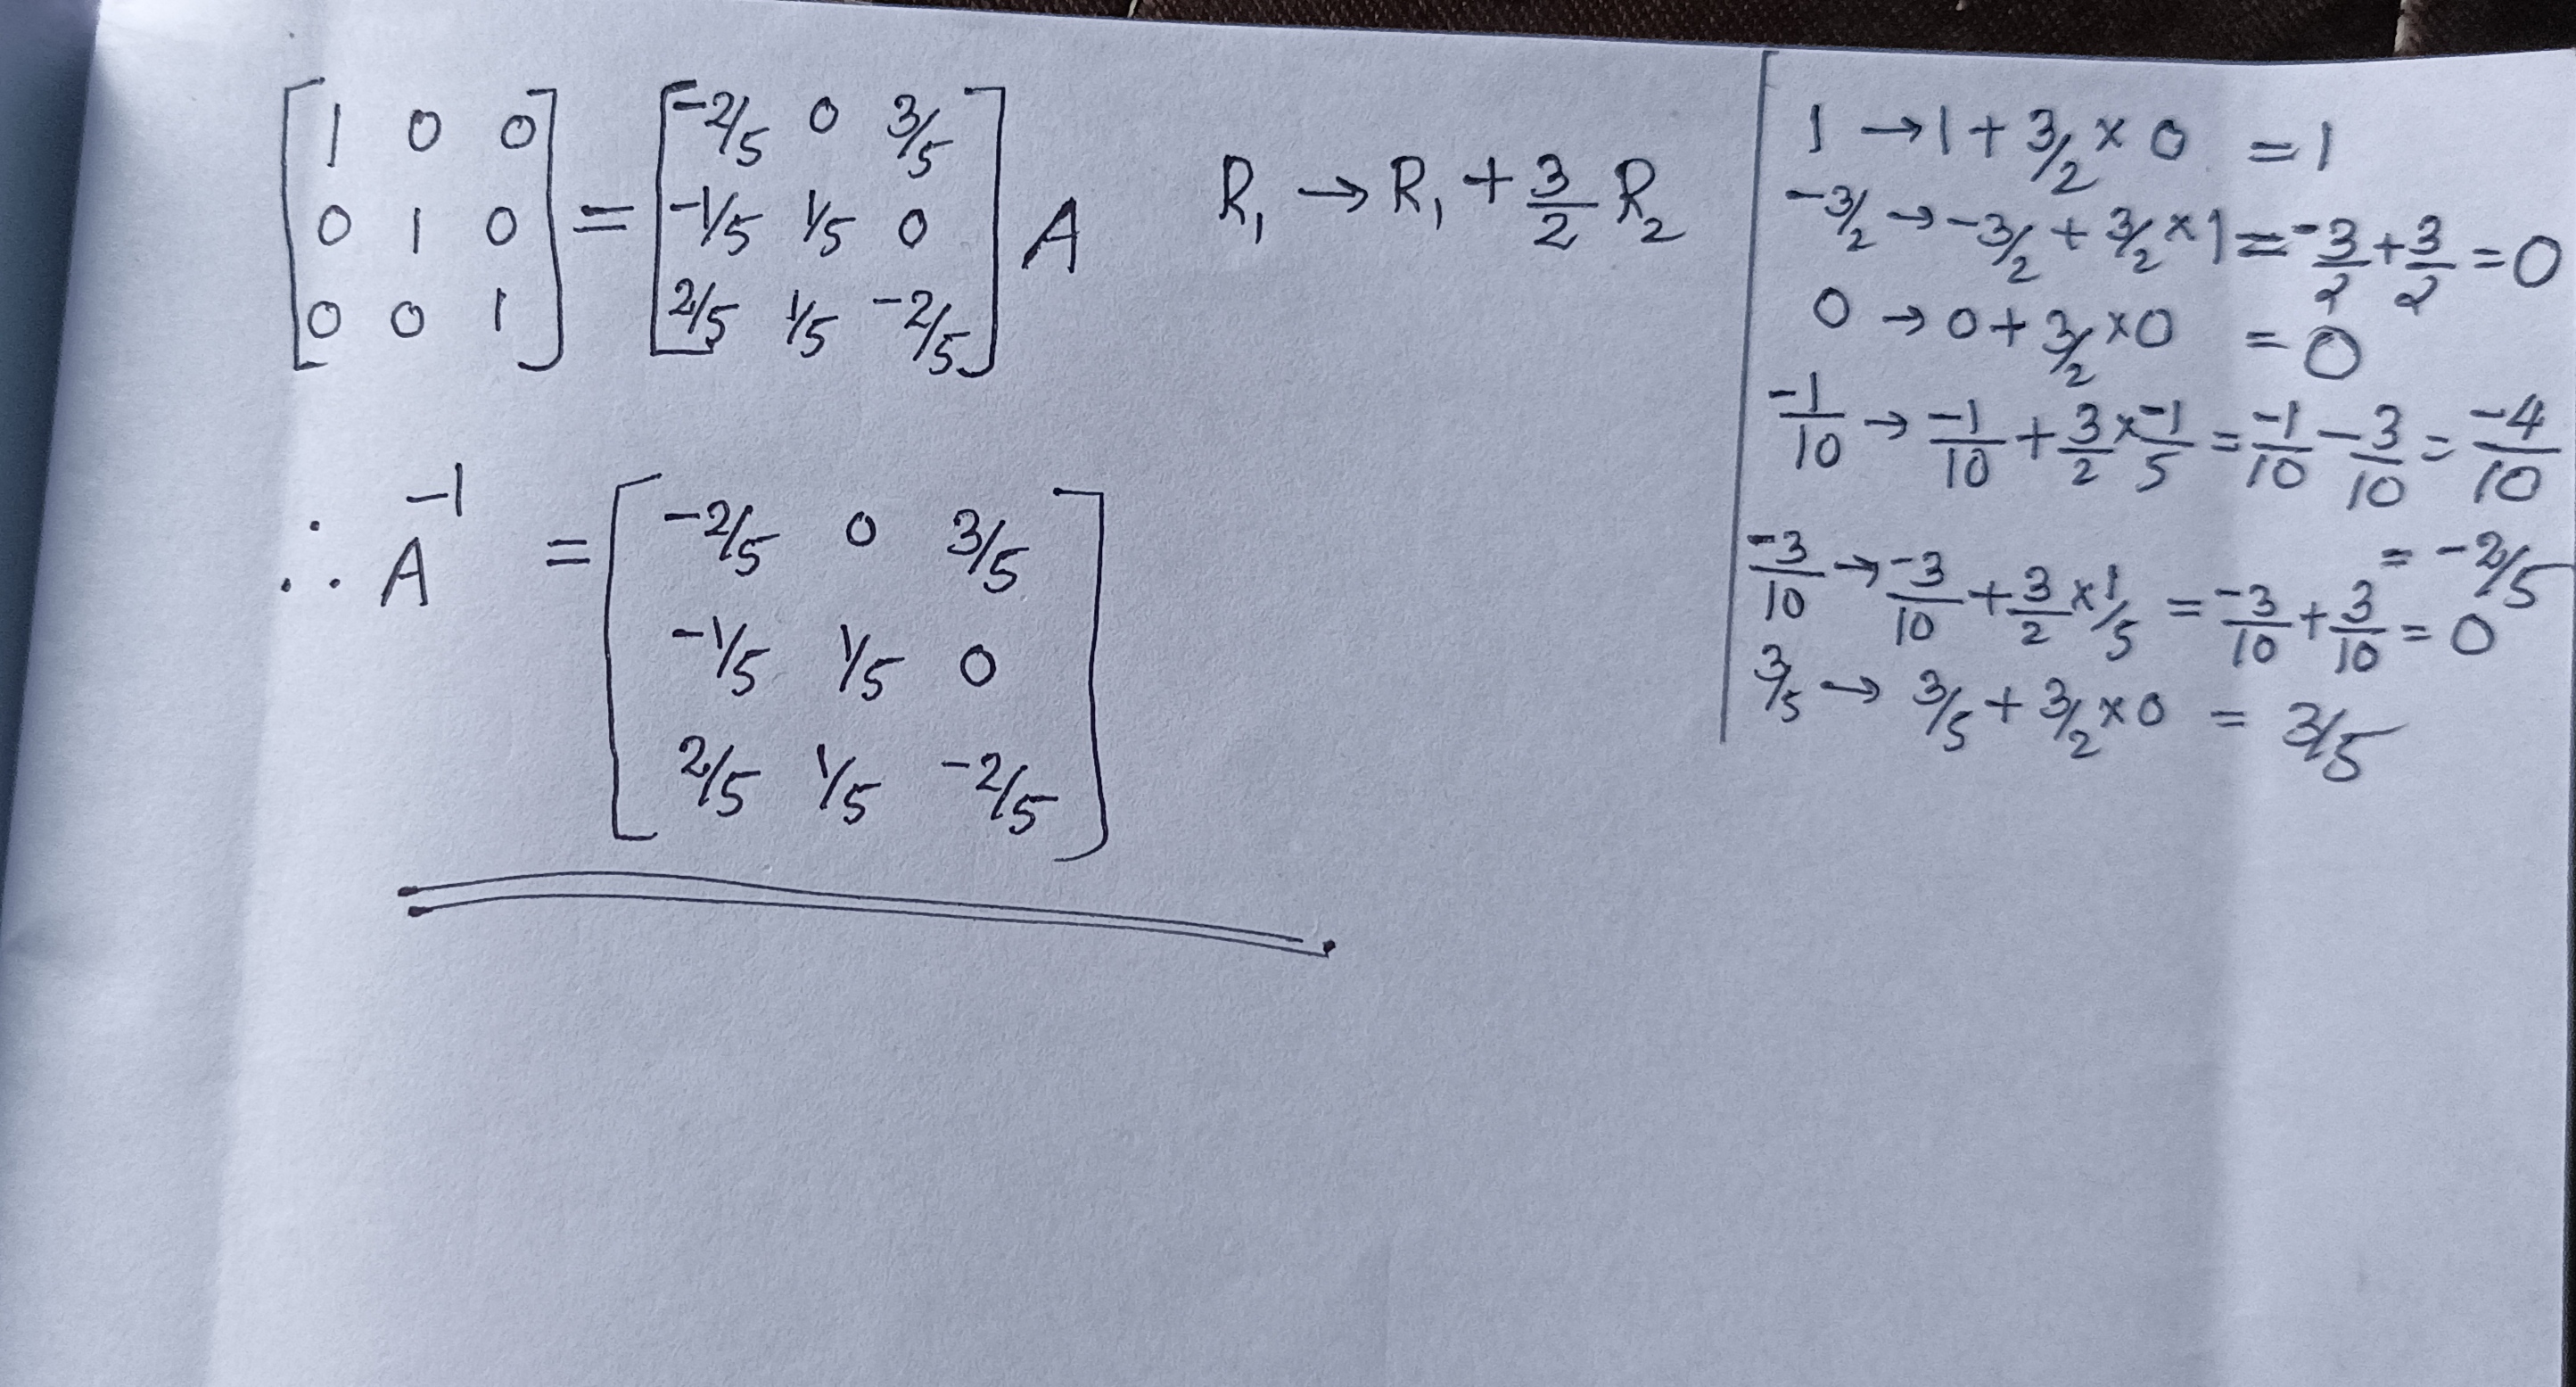 [1 0 0] = [-2/5 0 3/5]
[0 1 0] [-1/5 1/5 0] A R₁ → R₁ + 3/2 R₂
[0 0 1] [2/5 1/5 -2/5]
∴ A⁻¹ = [-2/5 0 3/5]
[-1/5 1/5 0]
[2/5 1/5 -2/5]
1 → 1 + 3/2 × 0 = 1
-3/2 → -3/2 + 3/2 × 1 = -3/2 + 3/2 = 0
0 → 0 + 3/2 × 0 = 0
-1/10 → -1/10 + 3/2 × -1/5 = -1/10 - 3/10 = -4/10
= -2/5
-3/10 → -3/10 + 3/2 × 1/5 = -3/10 + 3/10 = 0
3/5 → 3/5 + 3/2 × 0 = 3/5